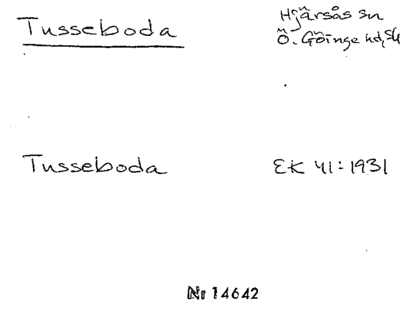 Tusseboda
Hjärsås sn
Ö. Göinge hd, Sk
Tusseboda
EK 41:1931
Nr 14642